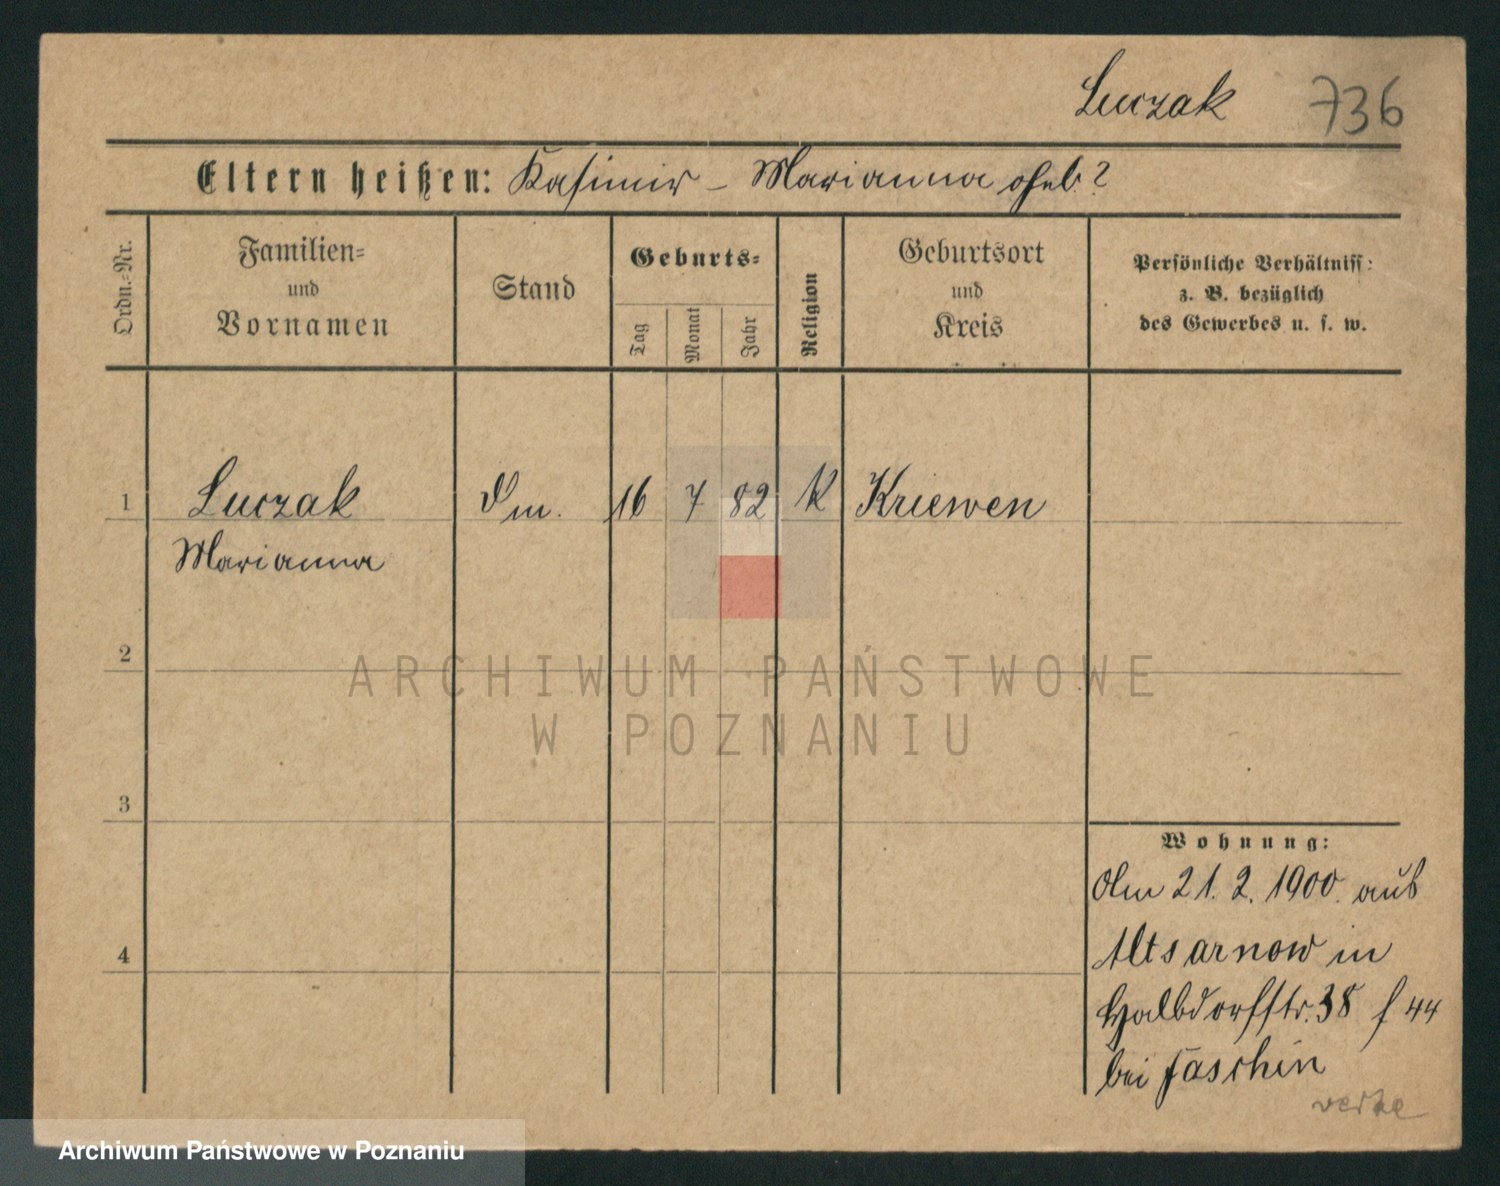 Luczak 736
Eltern heißen: Kasimir – Marianna geb. ?
Ordn.-Nr.
Familien-
und
Vornamen
Stand
Geburts-
Tag
Monat
Jahr
Religion
Geburtsort
und
Kreis
Persönliche Verhältniss:
z. B. bezüglich
des Gewerbes u. s. w.
1 Luczak Dm. 16 7 82 K Kriewen
Marianna
2
3
4
Wohnung:
Am 21. 2. 1900. aus
Altsarnow in
Halbdorfstr. 38 f 44
bei Faschin
ARCHIWUM PAŃSTWOWE
W POZNANIU
Archiwum Państwowe w Poznaniu